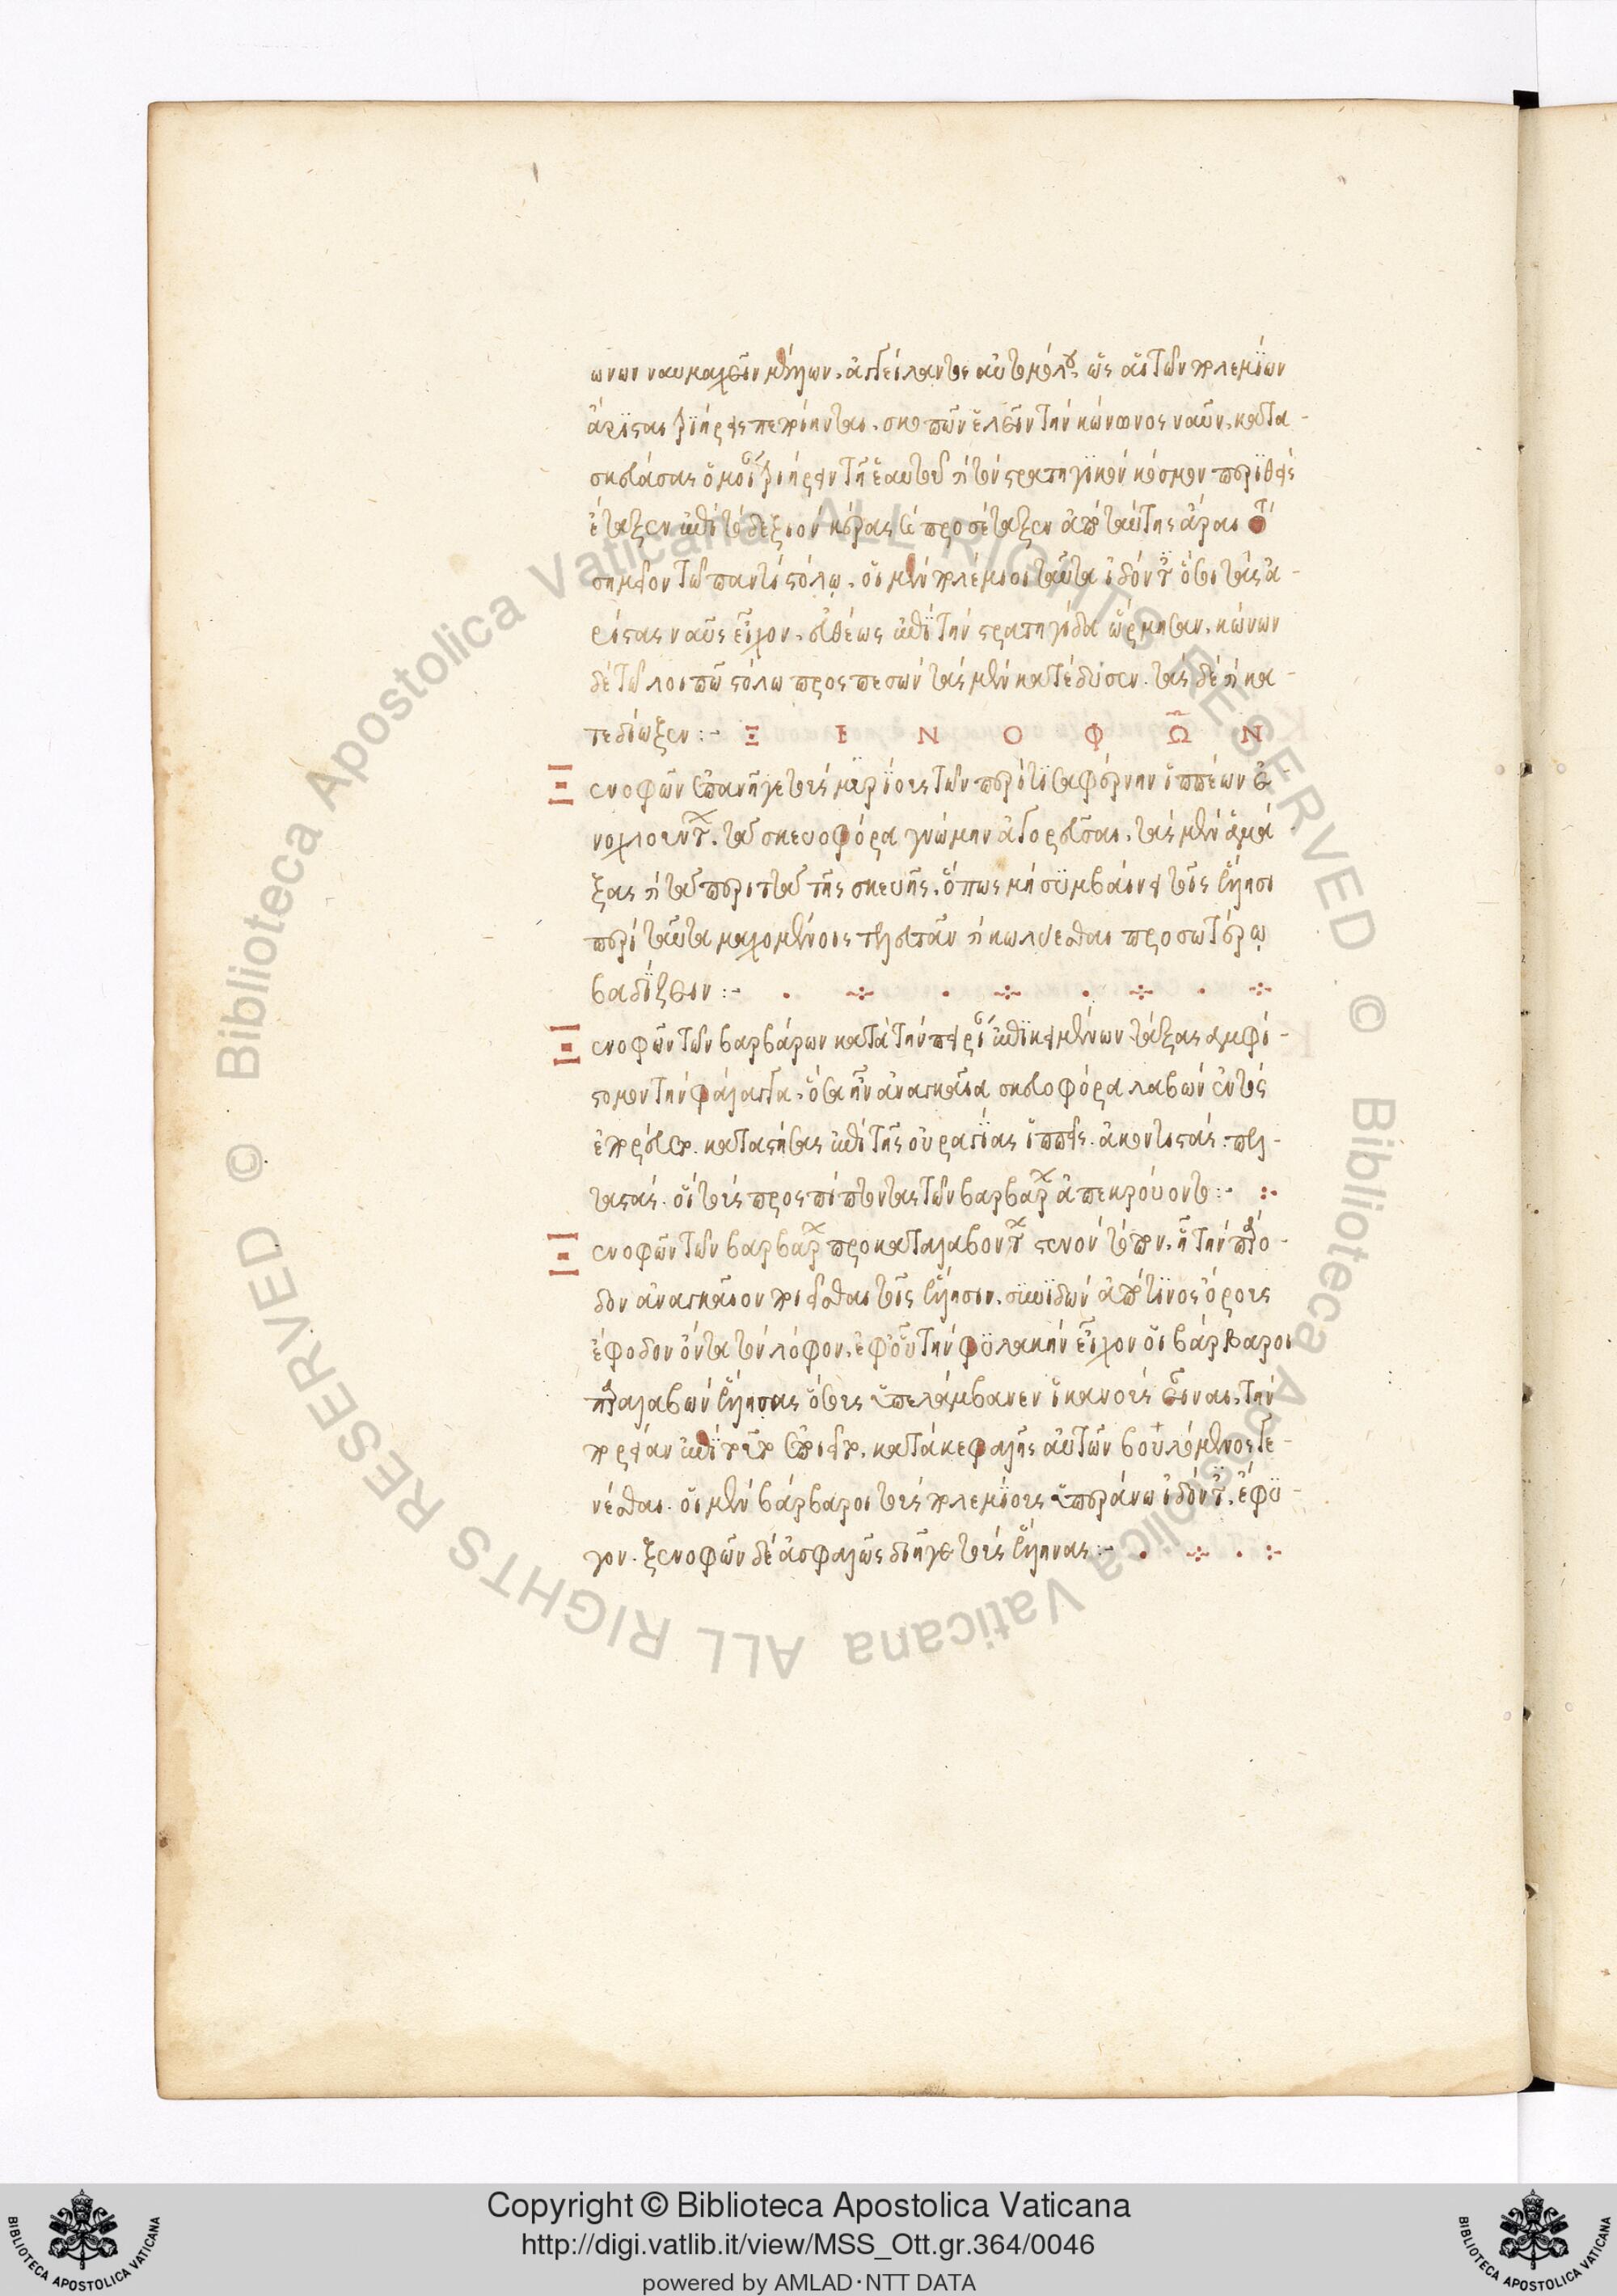 ωνων ναυμαχεῖν μέλλων, ἀγγείλαντος αὐτομόλου, ὡς αἱ τῶν πολεμίων
ἄρισται τριήρεις πεποίηνται, σκοπὸν ἑλεῖν τὴν κώνωνος ναῦν, κατα-
σκευάσας ὁμοίαν τριήρειν τῇ ἑαυτοῦ καὶ τὸν στρατηγικὸν κόσμον περιθεὶς
ἔταξεν ἐπὶ τὸ δεξιὸν κέρας καὶ προσέταξεν ἀπὸ ταύτης ἆραι τὸ
σημεῖον τῷ παντὶ στόλῳ. οἱ μὲν πολέμιοι ταῦτα ἰδόντες ὅτι τὰς ἀ-
ρίστας ναῦς εἶχον, εὐθέως ἐπὶ τὴν στρατηγίδα ὥρμησαν, κώνων
δὲ τῷ λοιπῷ στόλω προσπεσὼν τὰς μὲν κατέδυσεν. τὰς δὲ καὶ κα-
τεδίωξεν :- Ξ Ε Ν Ο Φ Ω Ν
Ξενοφῶν ἐπανῆγε τοὺς μυρίους τῶν περὶ τισαφέρνην ἱππέων ἐ-
νοχλούντων. τὰ σκευοφόρα γνώμην ἀγορεῦσαι, τὰς μὲν ἁμά
ξας καὶ τὰ περιττὰ τῆς σκευῆς, ὅπως μὴ συμβαίνει τοῖς ἕλλησι
περὶ ταῦτα μαχομένοις τελευτᾶν καὶ κωλύεσθαι προσωτέρω
βαδίζειν :-
Ξενοφῶν τῶν βαρβάρων κατὰ τὴν πορείαν ἐπικειμένων τάξας ἀμφί-
στομον τὴν φάλαγγα, ὅσα ἦν ἀναγκαῖα σκευοφόρα λαβὼν ἐντὸς
ἐπορεύετο. καταστήσας ἐπὶ τῆς οὐραγίας ἱππεῖς. ἀκοντιστάς. πελ-
ταστάς. οἳ τοὺς προσπίπτοντας τῶν βαρβάρων ἀπεκρούοντο :-
Ξενοφῶν τῶν βαρβάρων προκαταλαβόντων στενὸν τόπον, ᾗ τὴν πάρο-
δον ἀναγκαῖον ποιεῖσθαι τοῖς ἕλλησιν, συνιδὼν ἀπό τινος ὄρους
ἔφοδον ὄντα τὸν λόφον, ἐφ' οὗ τὴν φυλακὴν εἶχον οἱ βάρβαροι
παραλαβὼν ἕλληνας ὅσους ὑπελάμβανεν ἱκανοὺς εἶναι, τὴν
πορείαν ἐπὶ τοῦτο ἐποιεῖτο. κατὰ κεφαλῆς αὐτῶν βουλόμενος γε-
νέσθαι. οἱ μὲν βάρβαροι τοὺς πολεμίους ὑπεράνω ἰδόντες, ἔφυ-
γον. ξενοφῶν δὲ ἀσφαλῶς διῆγε τοὺς ἕλληνας :-
Copyright © Biblioteca Apostolica Vaticana
http://digi.vatlib.it/view/MSS_Ott.gr.364/0046
powered by AMLAD·NTT DATA
BIBLIOTECA APOSTOLICA VATICANA
BIBLIOTECA APOSTOLICA VATICANA
© Biblioteca Apostolica Vaticana ALL RIGHTS RESERVED
© Biblioteca Apostolica Vaticana ALL RIGHTS RESERVED